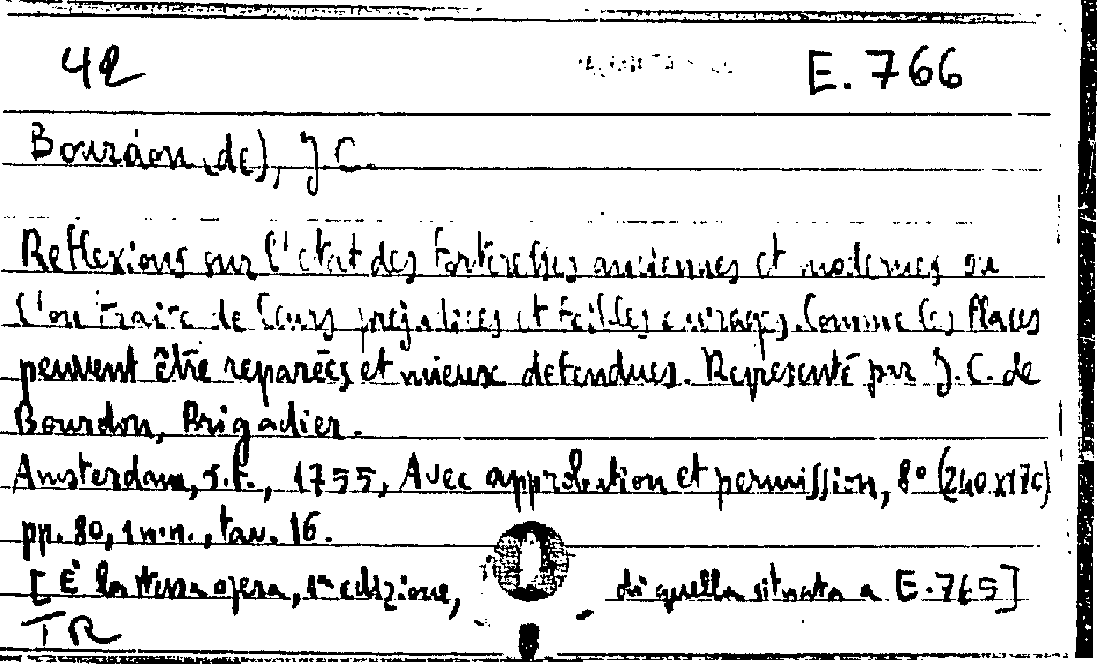 42 E. 766
Bourdon (de), J.C.
Reflexions sur l'etat des Forteresses anciennes et modernes ou
l'on traite de leurs prejudices et foibles ouvrages. Comme les Places
peuvent être reparées et mieux defendues. Representé par J.C. de
Bourdon, Brigadier.
Amsterdam, s.t., 1755, Avec approbation et permission, 8° (240x170)
pp. 80, 1 n.n., tav. 16.
[È la stessa opera, 1ª edizione, di quella situata a E.765]
TR